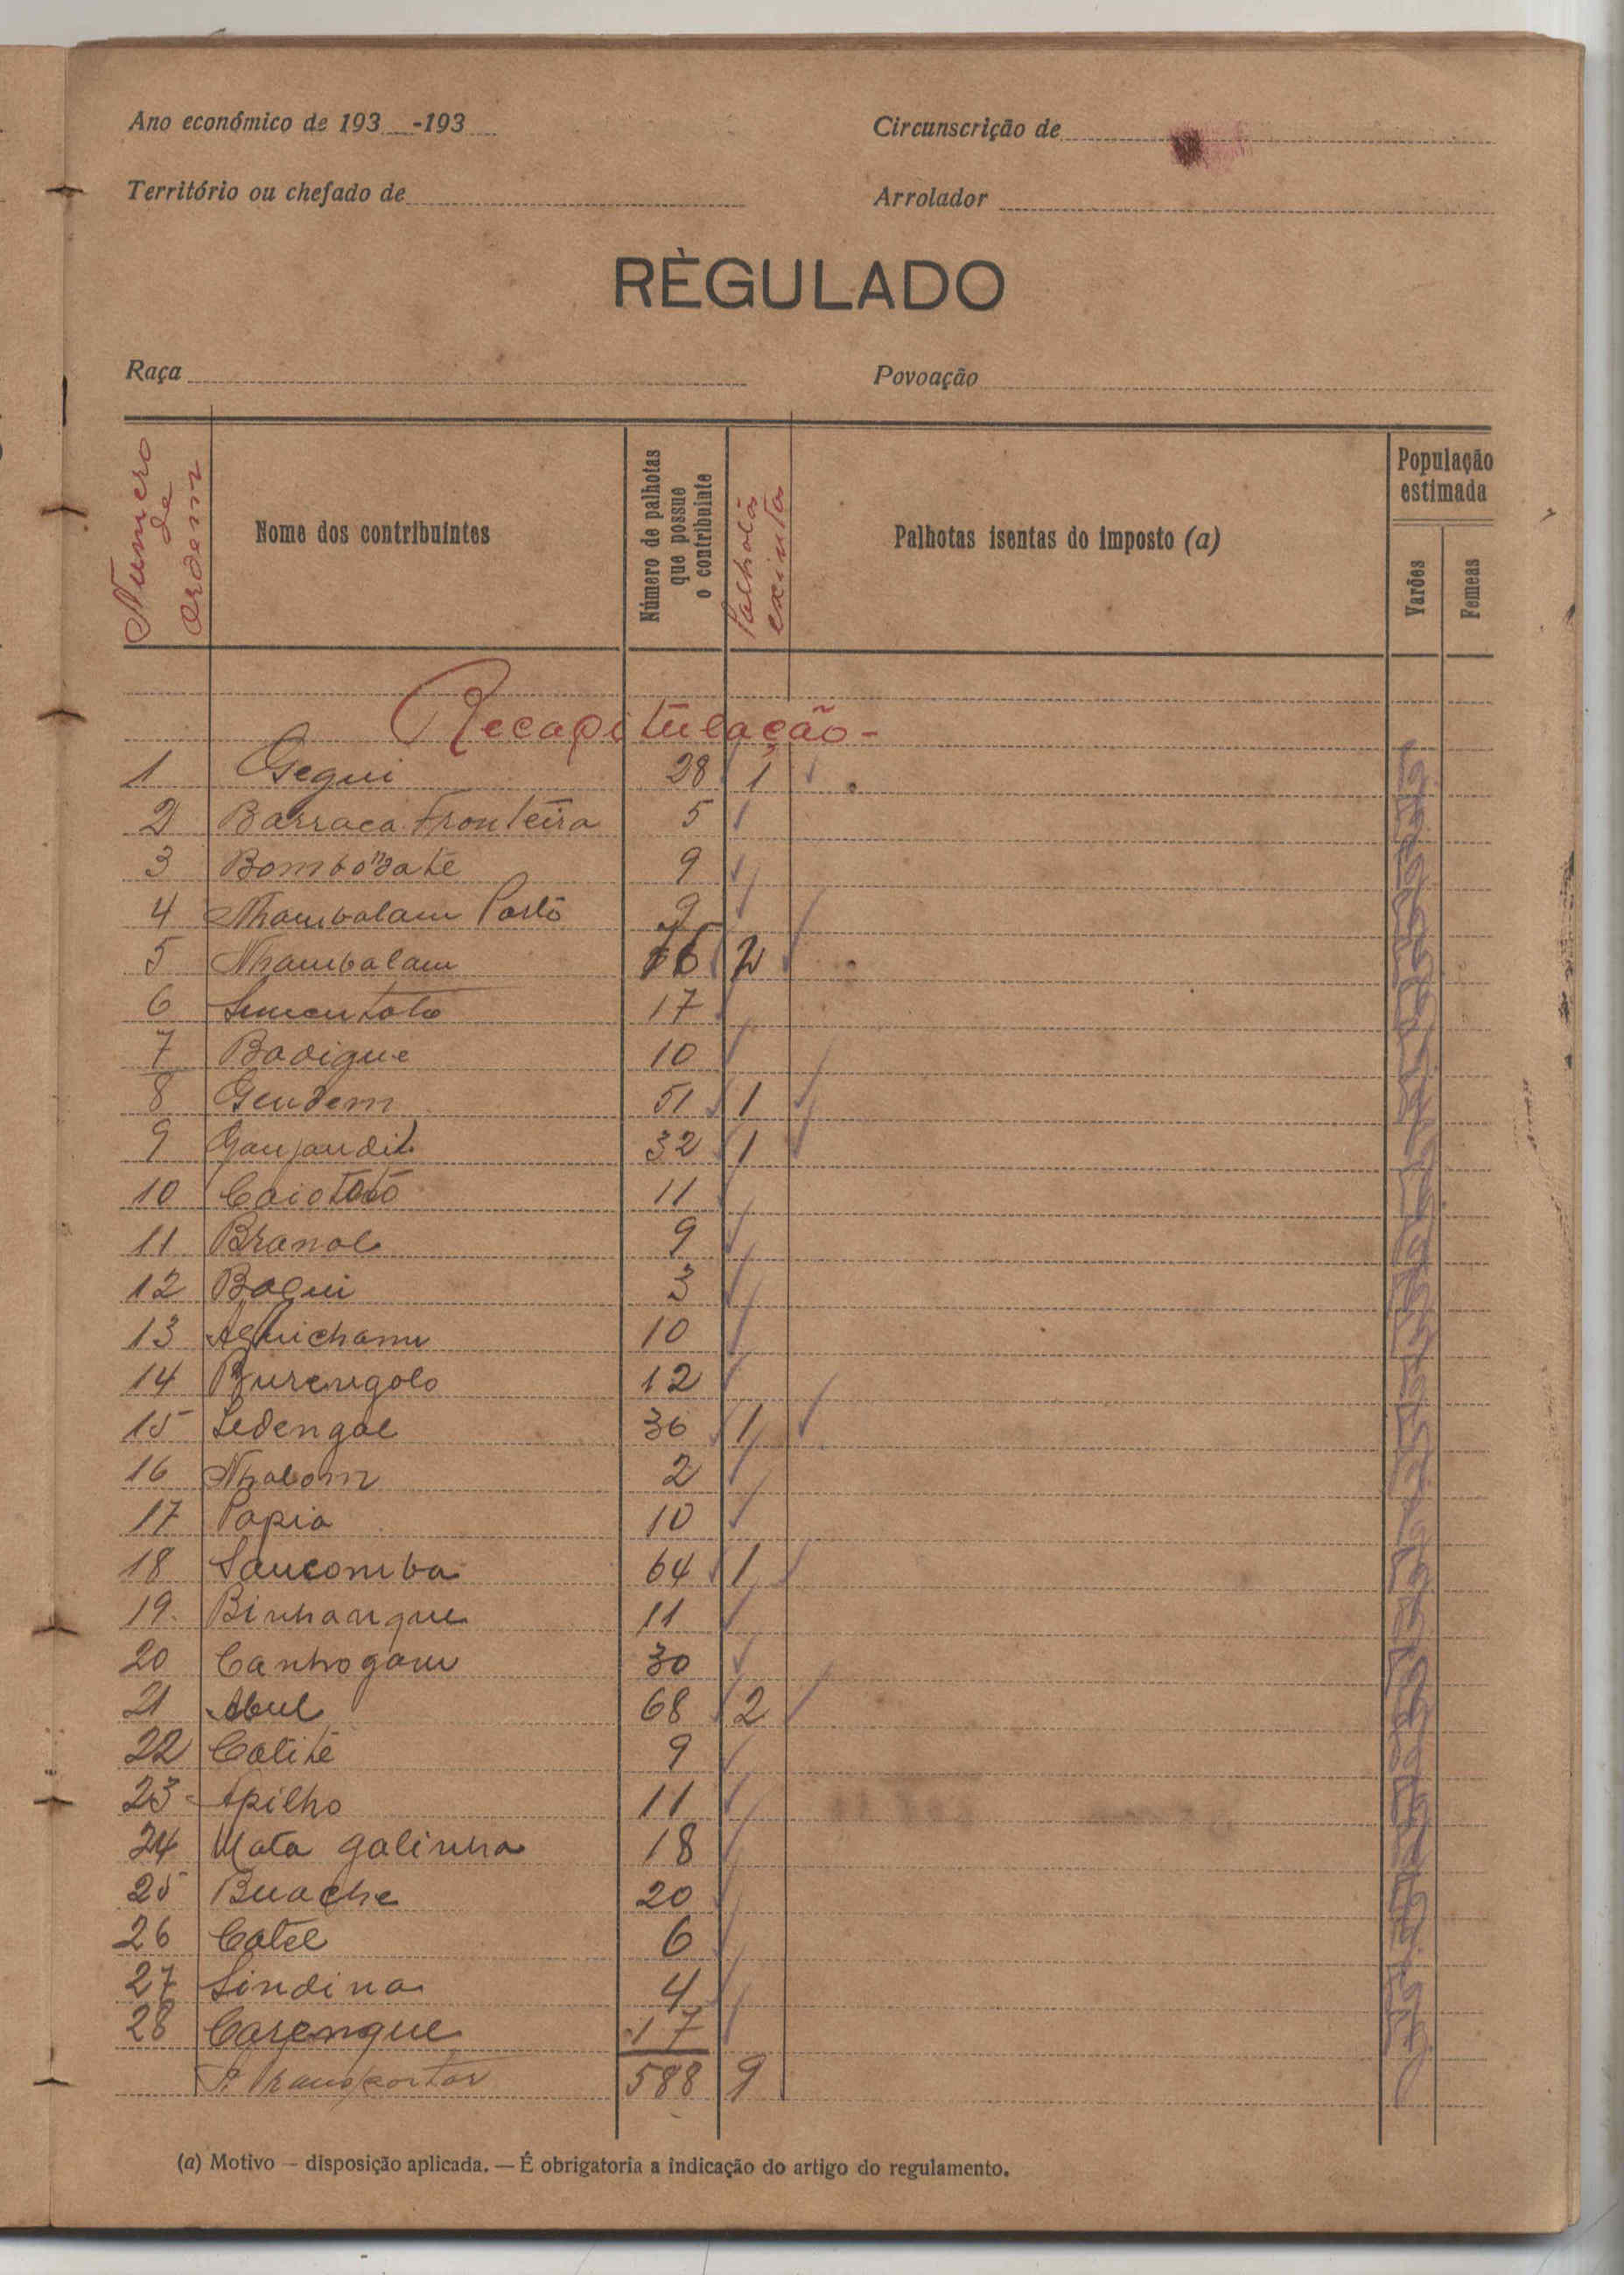 Ano económico de 193 -193
Circunscrição de
Território ou chefado de
Arrolador
RÈGULADO
Raça
Povoação
Numero de ordem
Nome dos contribuintes
Número de palhotas que possue o contribuinte
Palhotas exintas
Palhotas isentas do imposto (a)
População estimada
Varões
Femeas
Recapitulação-
1 Gegui 28 1
2 Barraca Fronteira 5
3 Bombonate 9
4 Nhambalam Porto 9
5 Nhambalam 76 2
6 Simentato 17
7 Badigue 10
8 Gendem 51 1
9 Ganjandit 32 1
10 Caiototó 11
11 Branol 9
12 Baqui 3
13 10
14 Burengolo 12
15 Sedengal 36 1
16 Nhabom 2
17 Papia 10
18 Sancomba 64 1
19 Binhangue 11
20 Canhogam 30
21 Abul 68 2
22 Catité 9
23 Apilho 11
24 Mata galinha 18
25 Buache 20
26 Catel 6
27 Sindina 4
28 Carengue 17
P. Transportar 588 9
(a) Motivo — disposição aplicada. — É obrigatoria a indicação do artigo do regulamento.